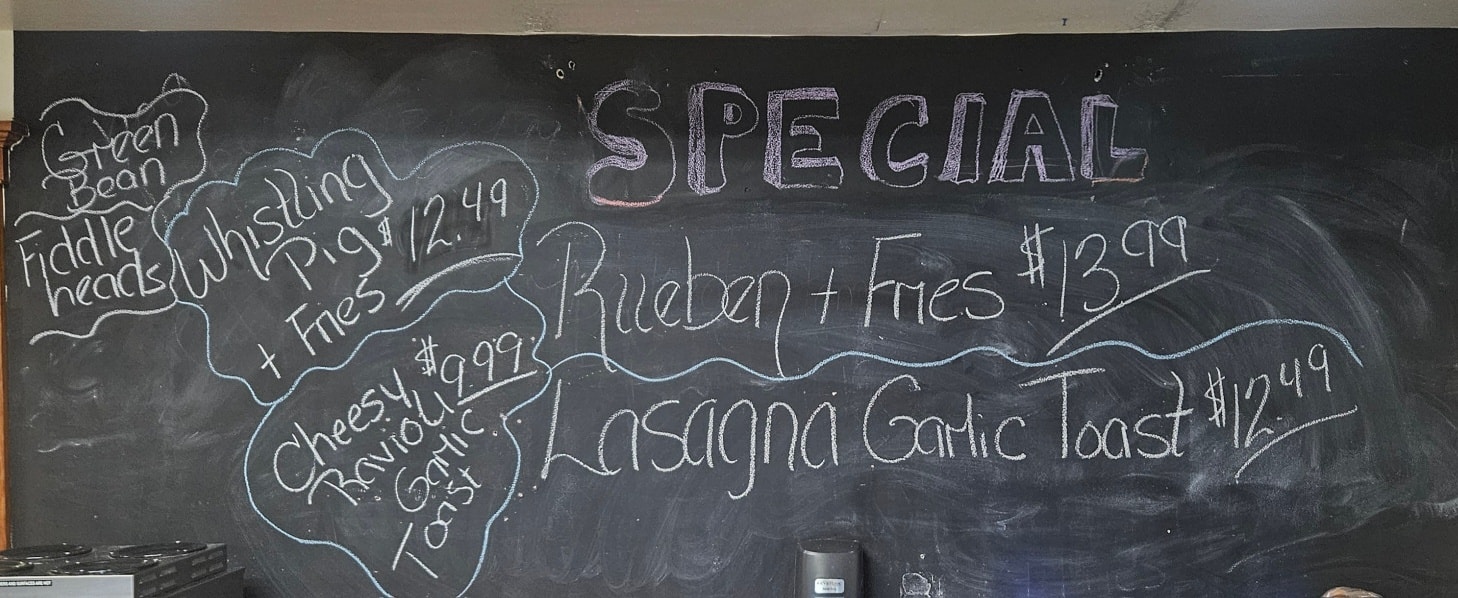 SPECIAL
Green
Bean
Fiddle
heads
Whistling
Pig $12.49
+ Fries
Cheesy $9.99
Ravioli
Garlic
Toast
Rueben + Fries $13.99
Lasagna Garlic Toast $12.49